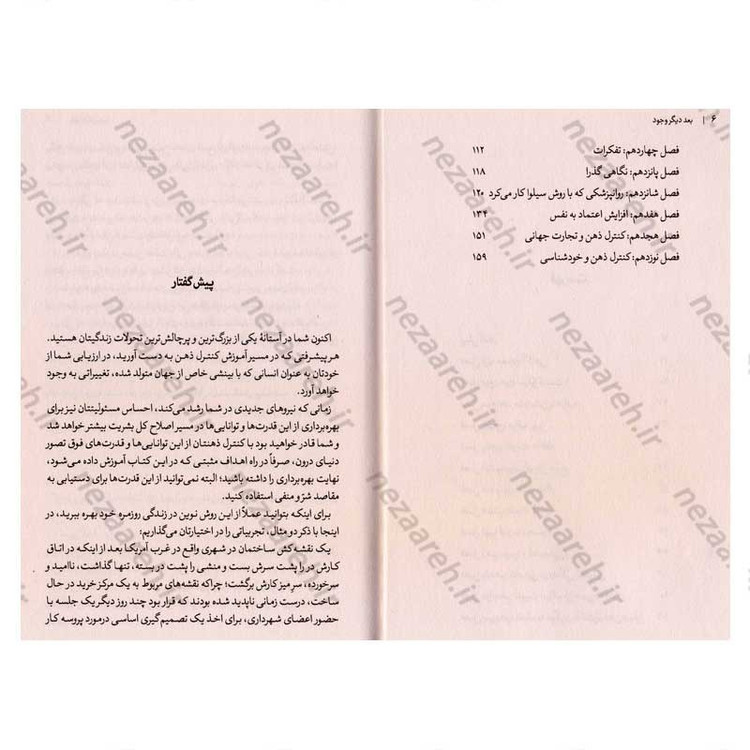 ۶ | بعد دیگر وجود
فصل چهاردهم: تفکرات ۱۱۲
فصل پانزدهم: نگاهی گذرا ۱۱۸
فصل شانزدهم: روانپزشکی که با روش سیلوا کار می‌کرد ۱۲۰
فصل هفدهم: افزایش اعتماد به نفس ۱۳۴
فصل هجدهم: کنترل ذهن و تجارت جهانی ۱۵۱
فصل نوزدهم: کنترل ذهن و خودشناسی ۱۵۹
پیش گفتار
اکنون شما در آستانهٔ یکی از بزرگ‌ترین و پرچالش‌ترین تحولات زندگیتان هستید.
هر پیشرفتی که در مسیر آموزش کنترل ذهن به دست آورید، در ارزیابی شما از
خودتان به عنوان انسانی که با بینشی خاص از جهان متولد شده، تغییراتی به وجود
خواهد آورد.
زمانی که نیروهای جدیدی در شما رشد می‌کند، احساس مسئولیتتان نیز برای
بهره‌برداری از این قدرت‌ها و توانایی‌ها در مسیر اصلاح کل بشریت بیشتر خواهد شد
و شما قادر خواهید بود با کنترل ذهنتان از این توانایی‌ها و قدرت‌های فوق تصور
دنیای درون، صرفاً در راه اهداف مثبتی که در این کتاب آموزش داده می‌شود،
نهایت بهره‌برداری را داشته باشید؛ البته نمی‌توانید از این قدرت‌ها برای دستیابی به
مقاصد شرّ و منفی استفاده کنید.
برای اینکه بتوانید عملاً از این روش نوین در زندگی روزمره خود بهره ببرید، در
اینجا با ذکر دو مثال، تجربیاتی را در اختیارتان می‌گذاریم:
یک نقشه‌کش ساختمان در شهری واقع در غرب آمریکا بعد از اینکه در اتاق
کارش در را پشت سرش بست و منشی را پشت در بسته، تنها گذاشت، ناامید و
سرخورده، سر میز کارش برگشت؛ چراکه نقشه‌های مربوط به یک مرکز خرید در حال
ساخت، درست زمانی ناپدید شده بودند که قرار بود چند روز دیگر یک جلسه با
حضور اعضای شهرداری، برای اخذ یک تصمیم‌گیری اساسی درمورد پروسه کار
nezaareh.ir
nezaareh.ir
nezaareh.ir
nezaareh.ir
nezaareh.ir
nezaareh.ir
nezaareh.ir